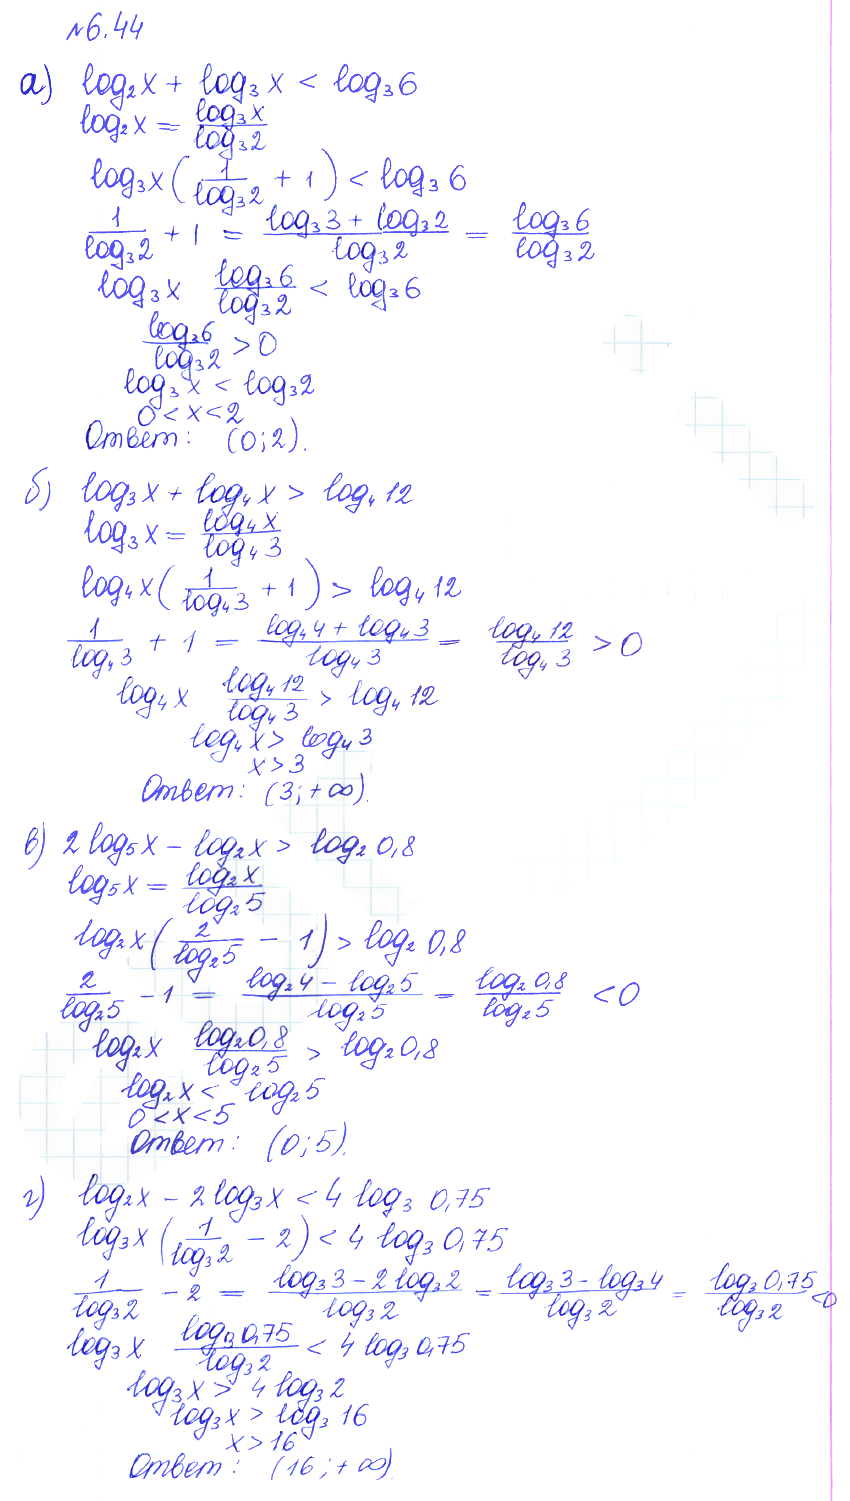 №6.44
а) log₂x + log₃x < log₃6
log₂x = log₃x / log₃2
log₃x (1/log₃2 + 1) < log₃6
1/log₃2 + 1 = (log₃3 + log₃2)/log₃2 = log₃6/log₃2
log₃x log₃6/log₃2 < log₃6
log₃6/log₃2 > 0
log₃x < log₃2
0 < x < 2
Ответ: (0; 2).
б) log₃x + log₄x > log₄12
log₃x = log₄x / log₄3
log₄x (1/log₄3 + 1) > log₄12
1/log₄3 + 1 = (log₄4 + log₄3)/log₄3 = log₄12/log₄3 > 0
log₄x log₄12/log₄3 > log₄12
log₄x > log₄3
x > 3
Ответ: (3; +∞).
в) 2 log₅x − log₂x > log₂0,8
log₅x = log₂x / log₂5
log₂x (2/log₂5 − 1) > log₂0,8
2/log₂5 − 1 = (log₂4 − log₂5)/log₂5 = log₂0,8/log₂5 < 0
log₂x log₂0,8/log₂5 > log₂0,8
log₂x < log₂5
0 < x < 5
Ответ: (0; 5).
г) log₂x − 2 log₃x < 4 log₃0,75
log₃x (1/log₃2 − 2) < 4 log₃0,75
1/log₃2 − 2 = (log₃3 − 2 log₃2)/log₃2 = (log₃3 − log₃4)/log₃2 = log₃0,75/log₃2 < 0
log₃x log₃0,75/log₃2 < 4 log₃0,75
log₃x > 4 log₃2
log₃x > log₃16
x > 16
Ответ: (16; +∞)